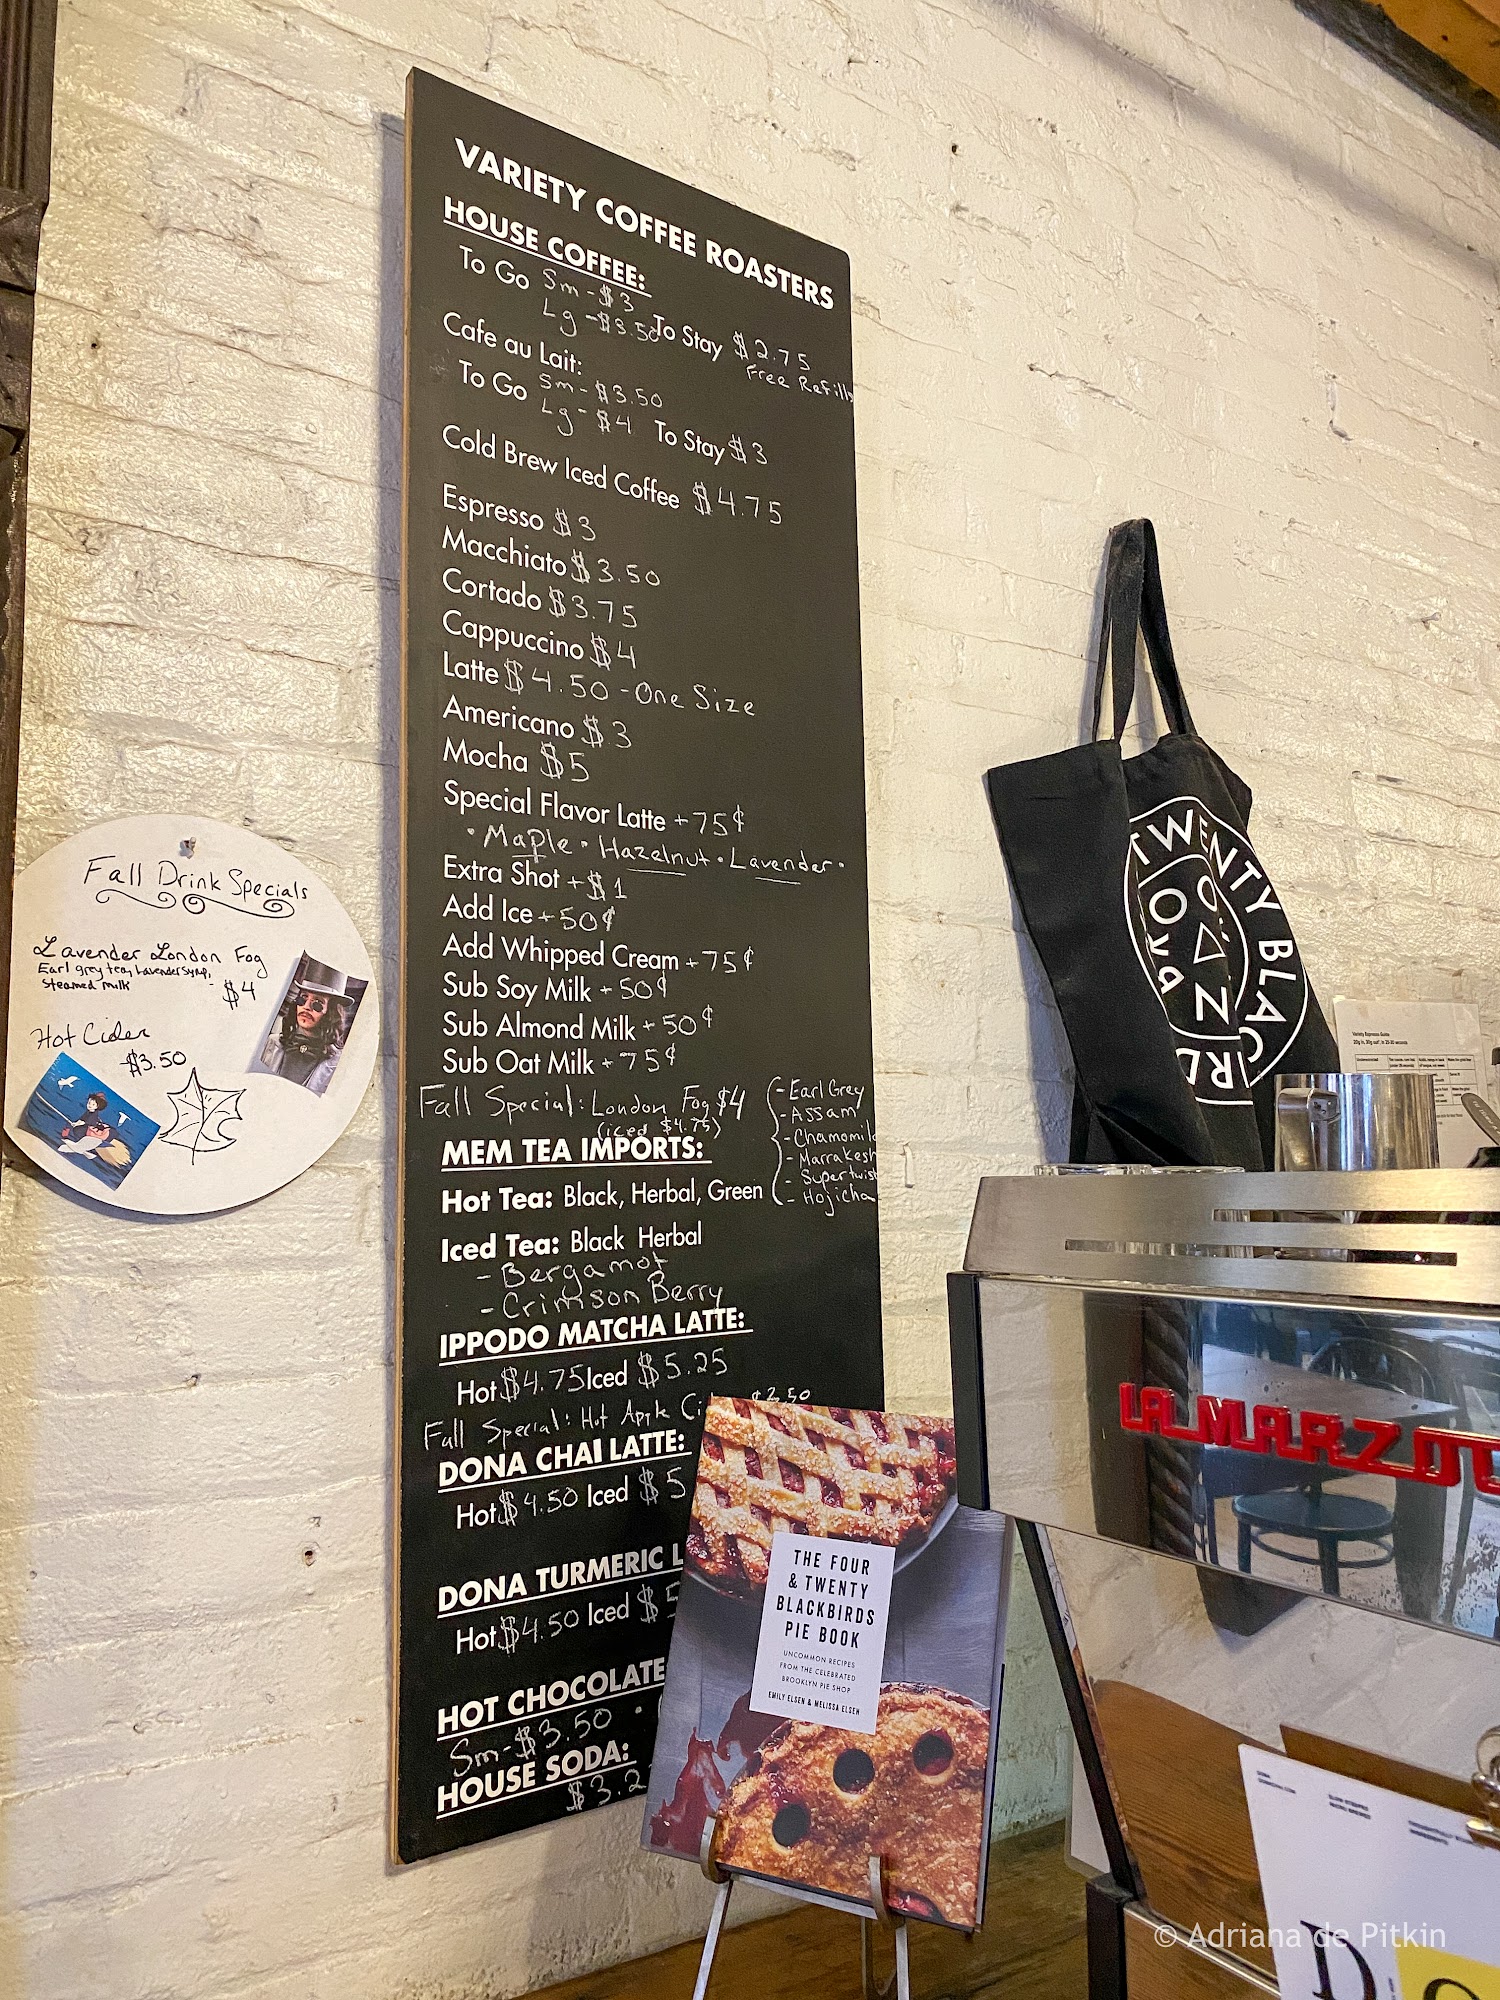 VARIETY COFFEE ROASTERS
HOUSE COFFEE:
To Go Sm - $3
Lg - $3.50 To Stay $2.75
Free Refills
Cafe au Lait:
To Go Sm - $3.50
Lg - $4 To Stay $3
Cold Brew Iced Coffee $4.75
Espresso $3
Macchiato $3.50
Cortado $3.75
Cappuccino $4
Latte $4.50 - One Size
Americano $3
Mocha $5
Special Flavor Latte + 75¢
• Maple • Hazelnut • Lavender •
Extra Shot + $1
Add Ice + 50¢
Add Whipped Cream + 75¢
Sub Soy Milk + 50¢
Sub Almond Milk + 50¢
Sub Oat Milk + 75¢
Fall Special: London Fog $4
(iced $4.75)
MEM TEA IMPORTS:
Hot Tea: Black, Herbal, Green
- Earl Grey
- Assam
- Chamomil
- Marrakesh
- Supertwist
- Hojicha
Iced Tea: Black Herbal
- Bergamot
- Crimson Berry
IPPODO MATCHA LATTE:
Hot $4.75 Iced $5.25
Fall Special: Hot Apple Ci $3.50
DONA CHAI LATTE:
Hot $4.50 Iced $5
DONA TURMERIC L
Hot $4.50 Iced $5
HOT CHOCOLATE
Sm - $3.50
HOUSE SODA:
$3.2
Fall Drink Specials
Lavender London Fog
Earl grey tea, Lavender Syrup,
Steamed milk
$4
Hot Cider
$3.50
TWENTY BLAC
IRD
THE FOUR
& TWENTY
BLACKBIRDS
PIE BOOK
UNCOMMON RECIPES
FROM THE CELEBRATED
BROOKLYN PIE SHOP
EMILY ELSEN & MELISSA ELSEN
Variety Espresso Guide
LA MARZO
© Adriana de Pitkin